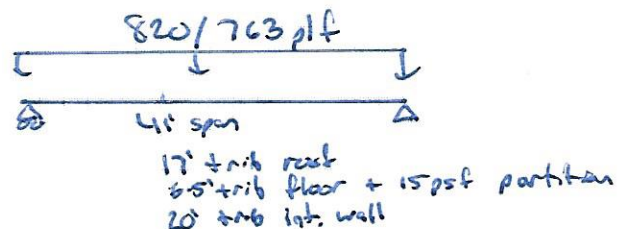 820/763 plf
41' span
17' trib roof
6.5' trib floor + 15psf partition
20' trib int. wall